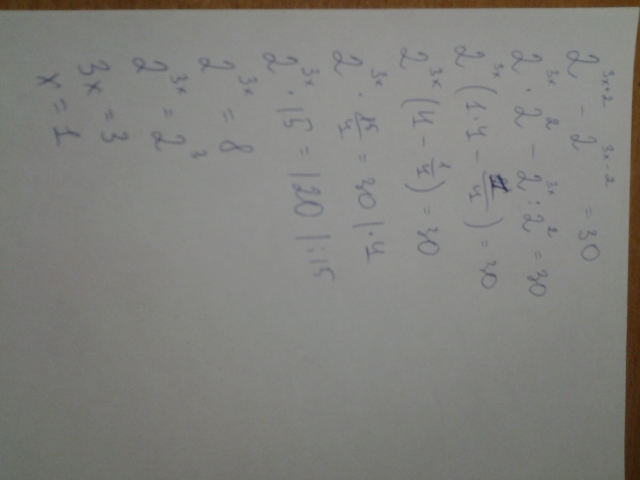 2^{3x+2} - 2^{3x-2} = 30
2^{3x} · 2^2 - 2^{3x} : 2^2 = 30
2^{3x} (1·4 - \frac{1}{4}) = 30
2^{3x} (4 - \frac{1}{4}) = 30
2^{3x} · \frac{15}{4} = 30 |·4
2^{3x} · 15 = 120 |:15
2^{3x} = 8
2^{3x} = 2^3
3x = 3
x = 1